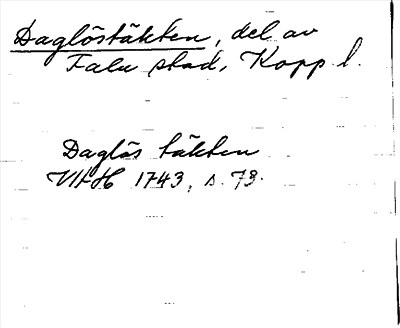 Daglöstäkten, del av
Falu stad, Kopp l.
Daglös täkten
VAH 1743, s. 73.